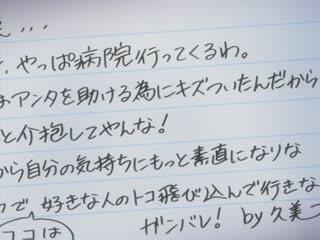 、やっぱ病院行ってくるわ。
アンタを助ける為にキズついたんだから
と介抱してやんな!
から自分の気持ちにもっと素直になりな
で好きな人のトコ飛び込んで行きな
ココは
ガンバレ! by久美